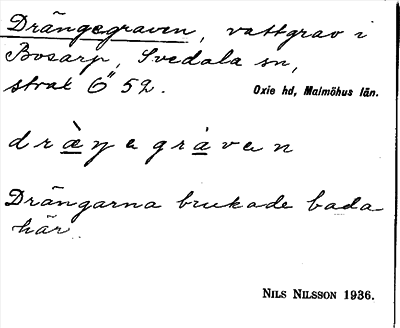 Drängegraven, vattgrav i
Bosarp, Svedala sn,
strax Ö 52.
Oxie hd, Malmöhus län.
d r æ̀ ŋ e g r á v e n
Drängarna brukade bada
här.
NILS NILSSON 1936.